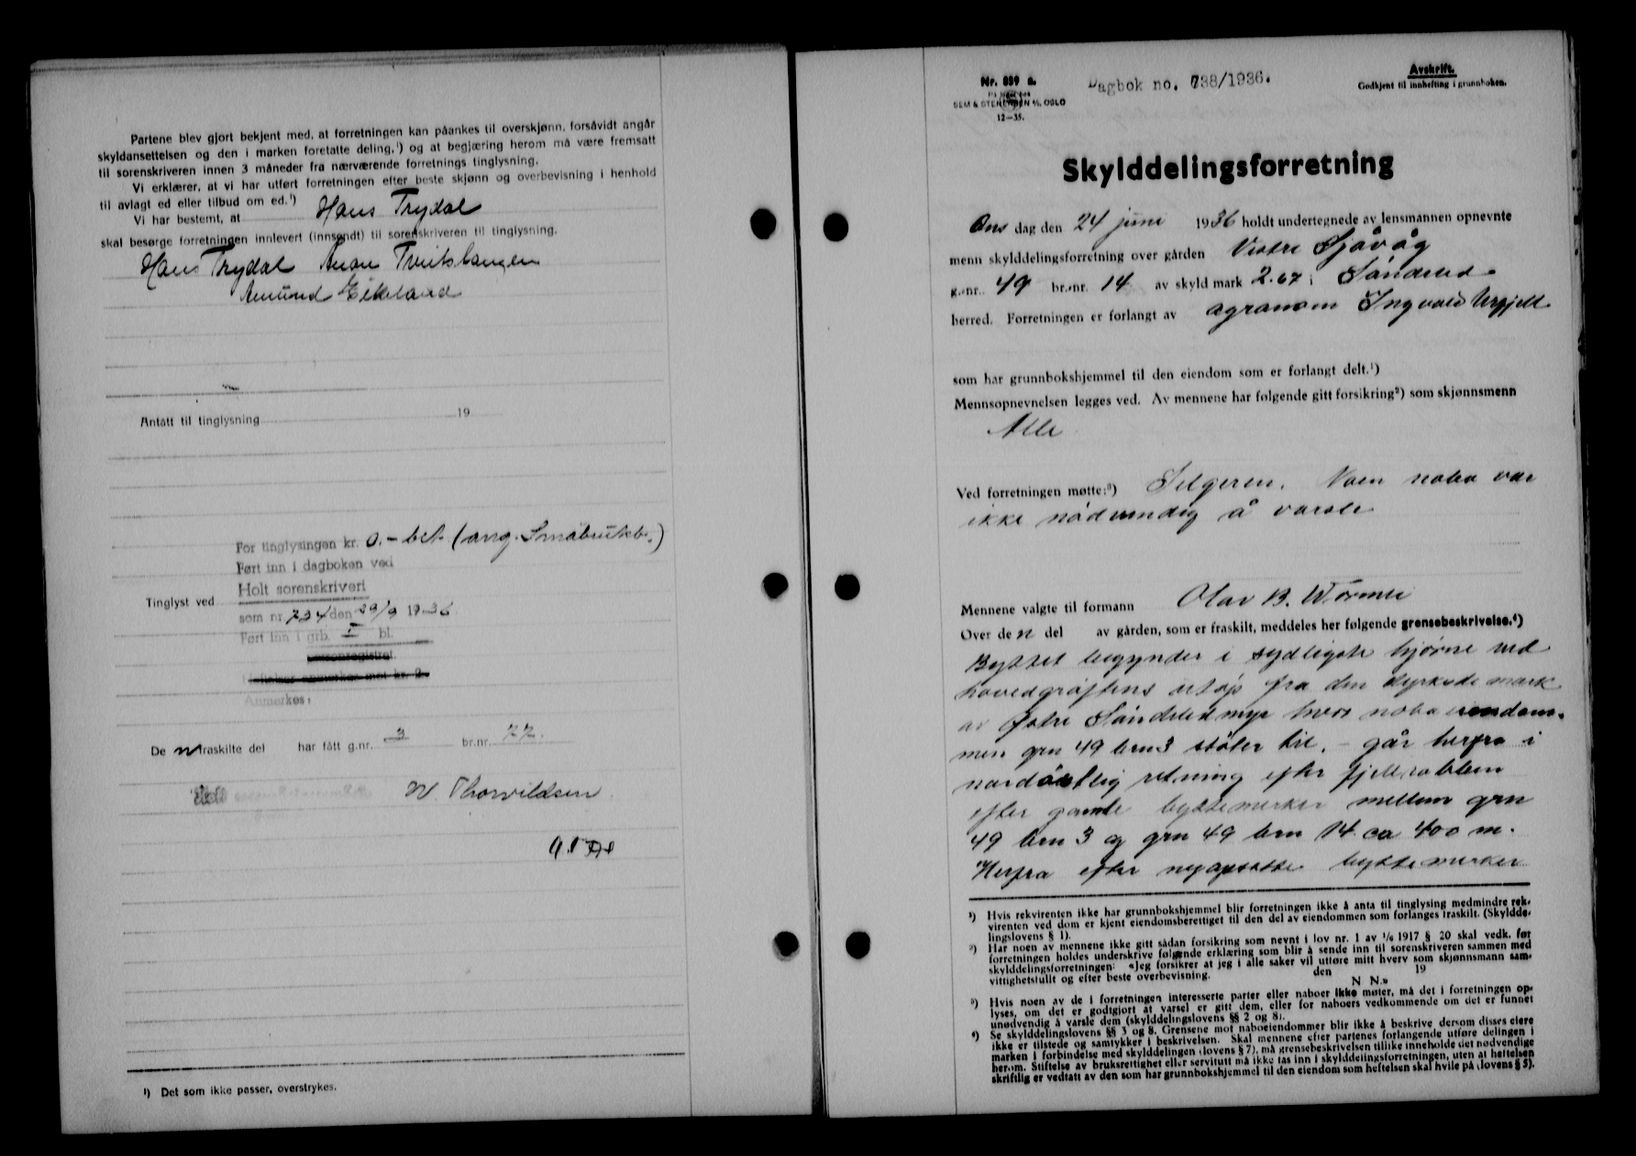 Partene blev gjort bekjent med, at forretningen kan påankes til overskjønn, forsåvidt angår
skyldansettelsen og den i marken foretatte deling,¹) og at begjæring herom må være fremsatt
til sorenskriveren innen 3 måneder fra nærværende forretnings tinglysning.
Vi erklærer, at vi har utført forretningen efter beste skjønn og overbevisning i henhold
til avlagt ed eller tilbud om ed.¹)
Vi har bestemt, at Hans Trydal
skal besørge forretningen innlevert (innsendt) til sorenskriveren til tinglysning.
Hans Trydal
Amund Eikeland
Antatt til tinglysning 19
For tinglysingen kr. 0.- bet. (ang. Småbrukb.)
Ført inn i dagboken ved
Holt sorenskriveri
Tinglyst ved
som nr. 734 den 29/9 1936
Ført inn i grb. I bl.
Anmerkes:
De n fraskilte del har fått g.nr. 3 br.nr. 77.
Thorvildsen
¹) Det som ikke passer, overstrykes.
Nr. 839 a.
SEM & STENERSEN A/S OSLO
12—35.
Dagbok no. 738/1936.
Avskrift.
Godkjent til innhefting i grunnboken.
Skylddelingsforretning
Ons dag den 24 juni 1936 holdt undertegnede av lensmannen opnevnte
menn skylddelingsforretning over gården Vestre Sjåvåg
g.-nr. 49 br.-nr. 14 av skyld mark 2.67 i Søndeled
herred. Forretningen er forlangt av agronom Ingvald
som har grunnbokshjemmel til den eiendom som er forlangt delt.¹)
Mennsopnevnelsen legges ved. Av mennene har følgende gitt forsikring²) som skjønnsmenn
Alle
Ved forretningen møtte:³) Selgeren. Noen nabo var
ikke nødvendig å varsle
Mennene valgte til formann Olav B.
Over de n del av gården, som er fraskilt, meddeles her følgende grensebeskrivelse.⁴)
Byttet begynder i sydligste hjørne ved
hovedgrøftens utløp fra den dyrkede mark
av Østre Søndeled myr hvor naboeiendom-
men grn 49 brn 3 støter til. - går herfra i
nordøstlig retning efter fjellrabben
efter gamle byttemerker mellem grn
49 brn 3 og grn 49 brn 14 ca 400 m.
Herfra efter nyopsatte byttemerker
¹) Hvis rekvirenten ikke har grunnbokshjemmel blir forretningen ikke å anta til tinglysing medmindre rek-
virenten ved dom er kjent eiendomsberettiget til den del av eiendommen som forlanges fraskilt. (Skyldde-
lingslovens § 1).
²) Har noen av mennene ikke gitt sådan forsikring som nevnt i lov nr. 1 av 1/6 1917 § 20 skal vedk. før
forretningen holdes underskrive følgende erklæring som blir å sende inn til sorenskriveren sammen med
skylddelingsforretningen: «Jeg forsikrer at jeg i alle saker vil utføre mitt hverv som skjønnsmann sam-
vittighetsfullt og efter beste overbevisning. den 19
N N.»
³) Hvis noen av de i forretningen interesserte parter eller naboer ikke møter, må det i forretningen op-
lyses, om det er godtgjort at varsel er gitt dem, eller for naboers vedkommende om det er funnet
unødvendig å varsle dem (skylddelingslovens §§ 2 og 8).
⁴) Se skylddelingslovens §§ 3 og 8. Grensene mot naboeiendommer blir ikke å beskrive dersom disses eiere
ikke er tilstede og samtykker i beskrivelsen. Skal mennene efter partenes forlangende utføre delingen i
marken i forbindelse med skylddelingen (lovens § 7), må grensebeskrivelsen tillike inneholde det nødvendige
herom. Stiftelse av bruksrettighet eller servitutt må ikke tas inn i skylddelingsforretningen, uten at heftelsen
skriftlig er vedtatt av den som har grunnbokshjemmel til den eiendom som heftelsen skal hvile på (lovens § 5).